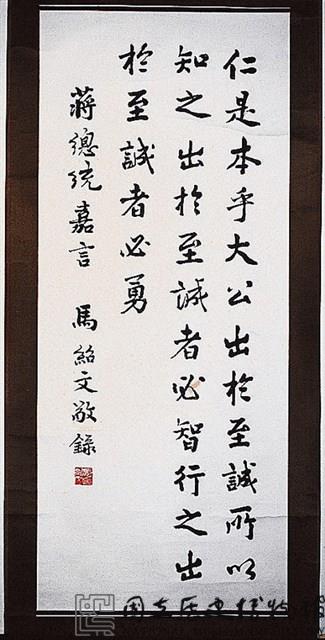 仁是本乎大公出於至誠所以
知之出於至誠者必智行之出
於至誠者必勇
蔣總統嘉言 馬紹文敬錄
國立歷史博物館